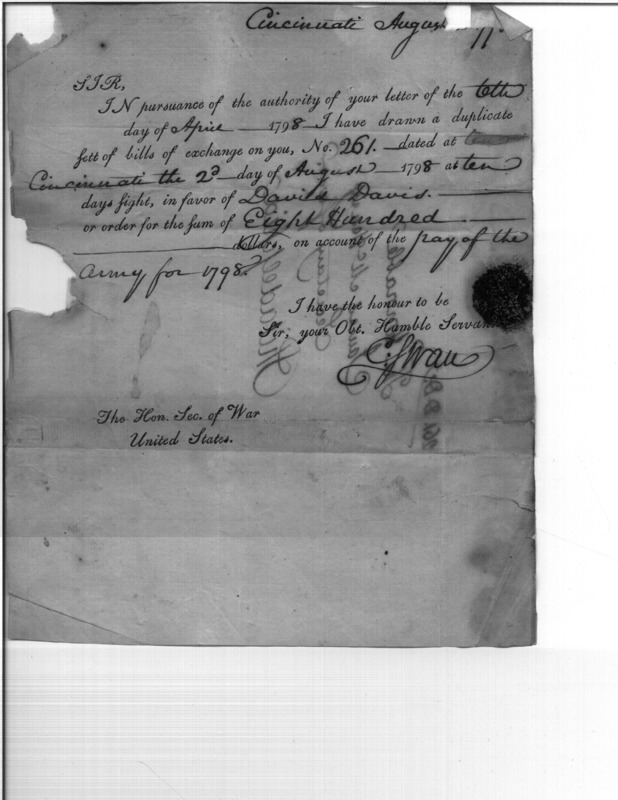 Cincinnati August
SIR,
IN pursuance of the authority of your letter of the 16th
day of April 1798 I have drawn a duplicate
sett of bills of exchange on you, No. 261. dated at
Cincinnati the 2d day of August 1798 at ten
days sight, in favor of David Davis.
or order for the sum of Eight Hundred
dollars, on account of the pay of the
Army for 1798.
I have the honour to be
Sir, your Obt. Humble Servant
C. Swan
The Hon. Sec. of War
United States.